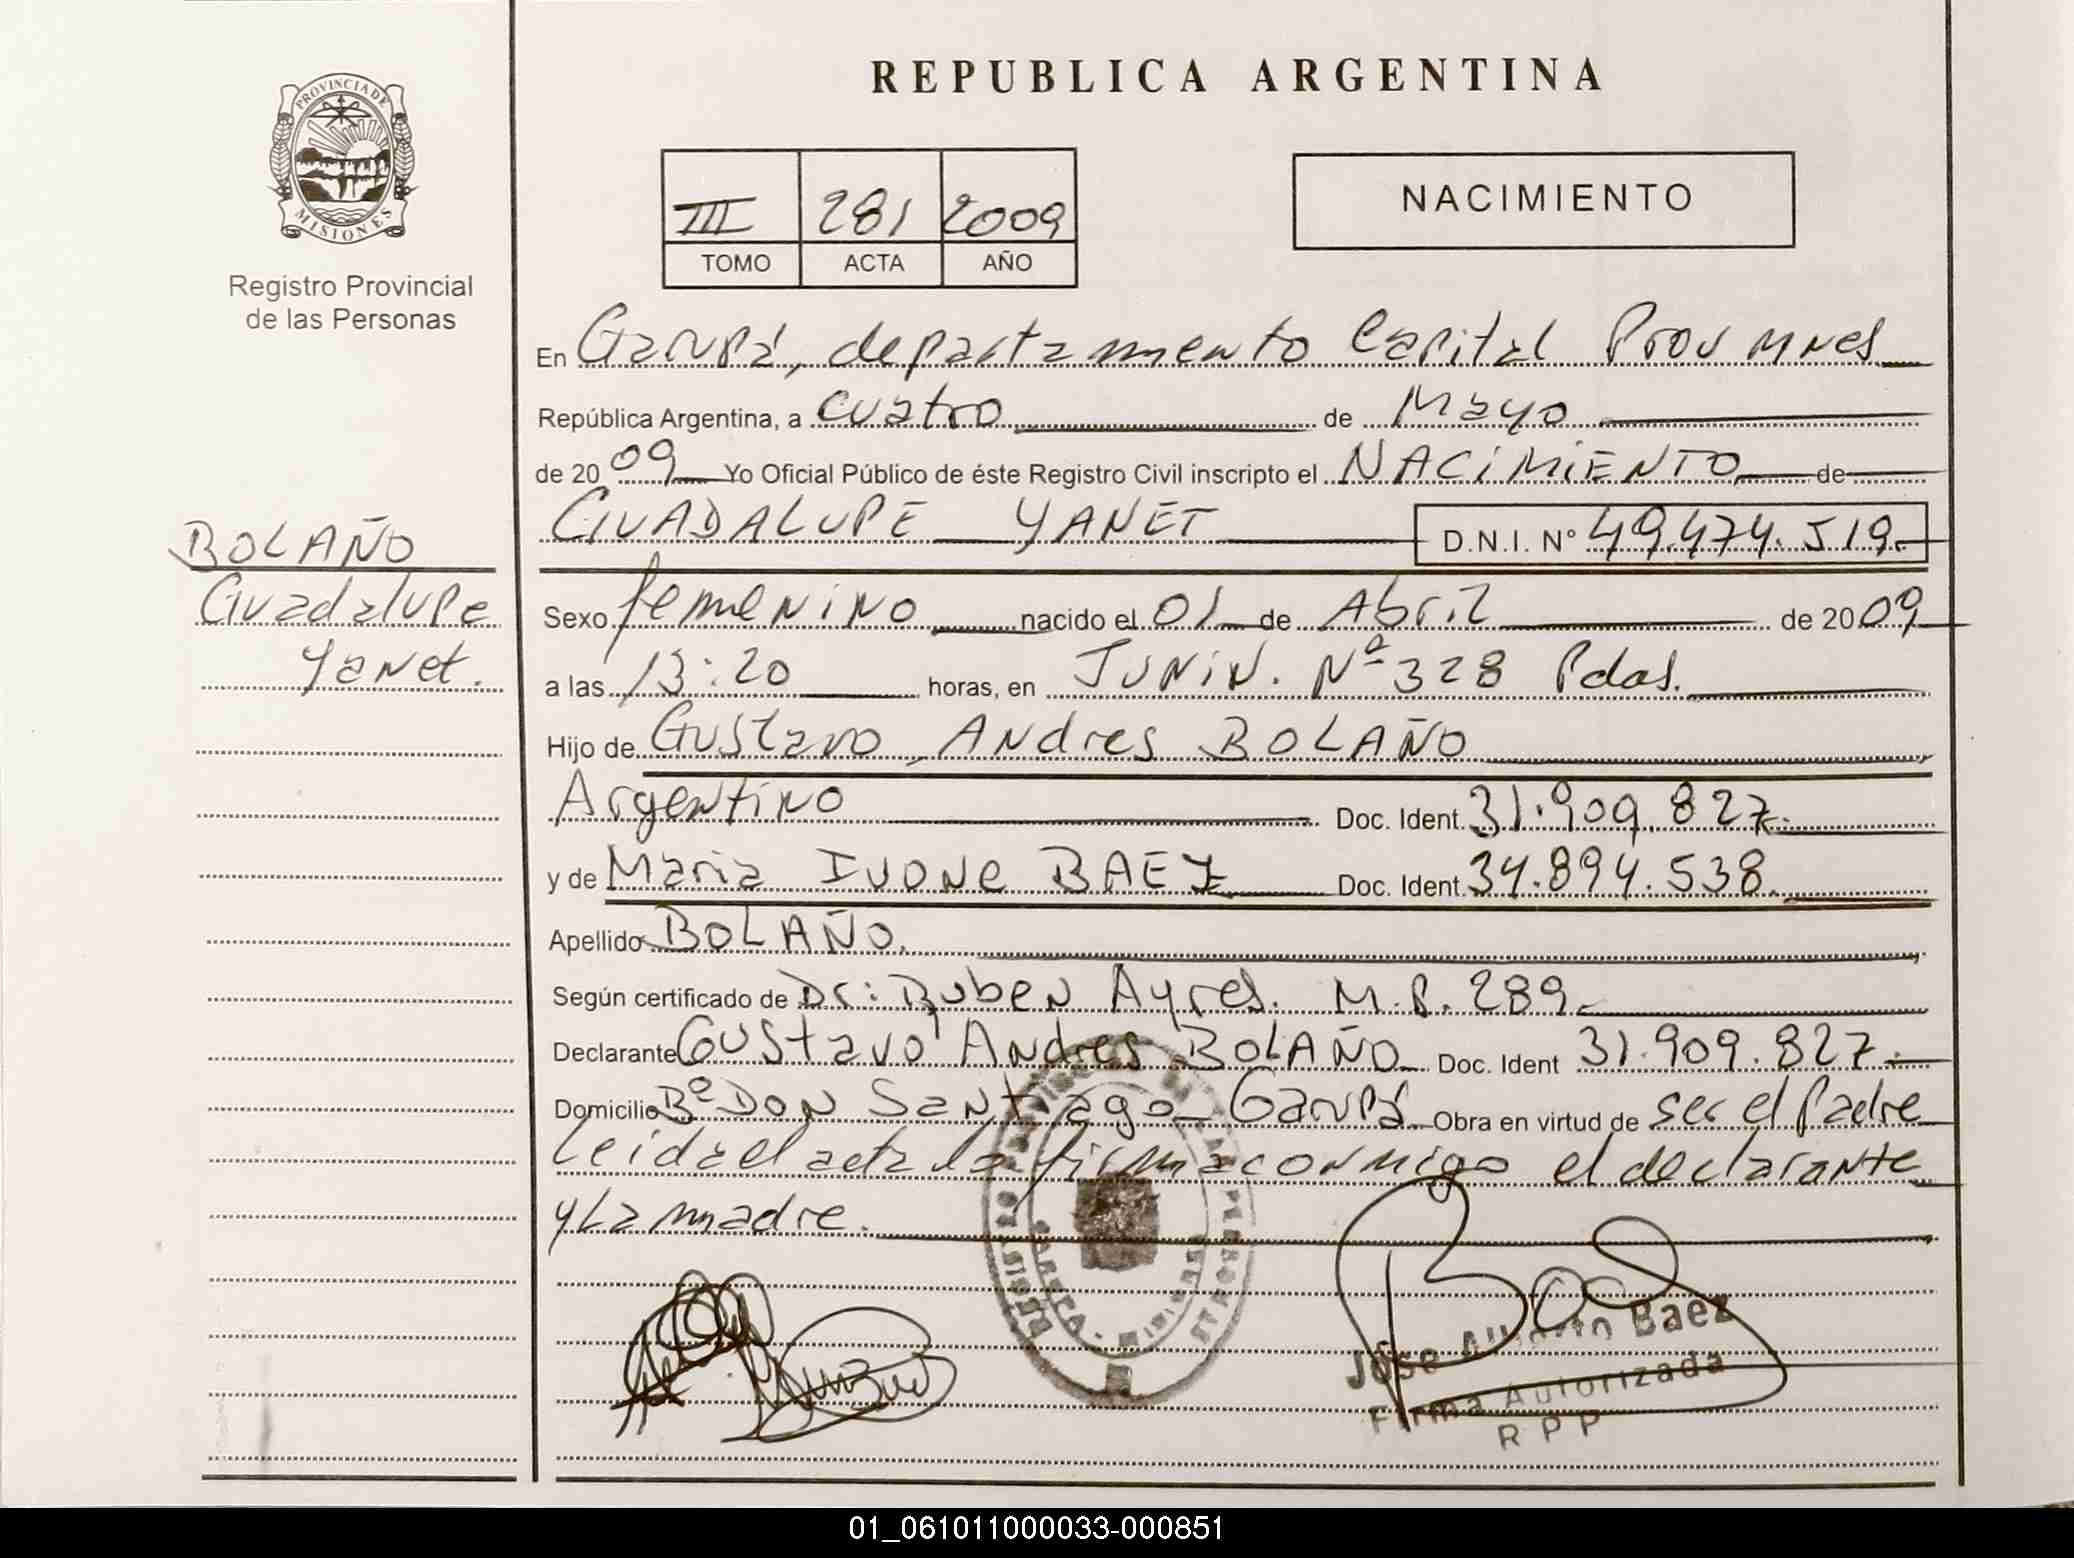 REPUBLICA ARGENTINA
PROVINCIA DE
MISIONES
Registro Provincial
de las Personas
III 281 2009
TOMO ACTA AÑO
NACIMIENTO
En Garupá, departamento Capital Prov Mnes
República Argentina, a cuatro de Mayo
de 2009 Yo Oficial Público de éste Registro Civil inscripto el NACIMIENTO de
GUADALUPE YANET D.N.I. Nº 49.474.519.
BOLAÑO
Guadalupe
Yanet.
Sexo femenino nacido el 01 de Abril de 2009
a las 13:20 horas, en JUNIN. Nº 328 Pdas.
Hijo de Gustavo Andres BOLAÑO
Argentino Doc. Ident. 31.909.827.
y de Maria Ivone BAEZ Doc. Ident. 34.894.538.
Apellido BOLAÑO.
Según certificado de Dr: Ruben Ayres. M.P. 289.
Declarante Gustavo Andres BOLAÑO Doc. Ident 31.909.827.
Domicilio Bº DON Santiago Garupá Obra en virtud de ser el Padre
Leida el acta la firma conmigo el declarante
y La madre.
Jose Alberto Baez
Firma Autorizada
R P P
01_061011000033-000851